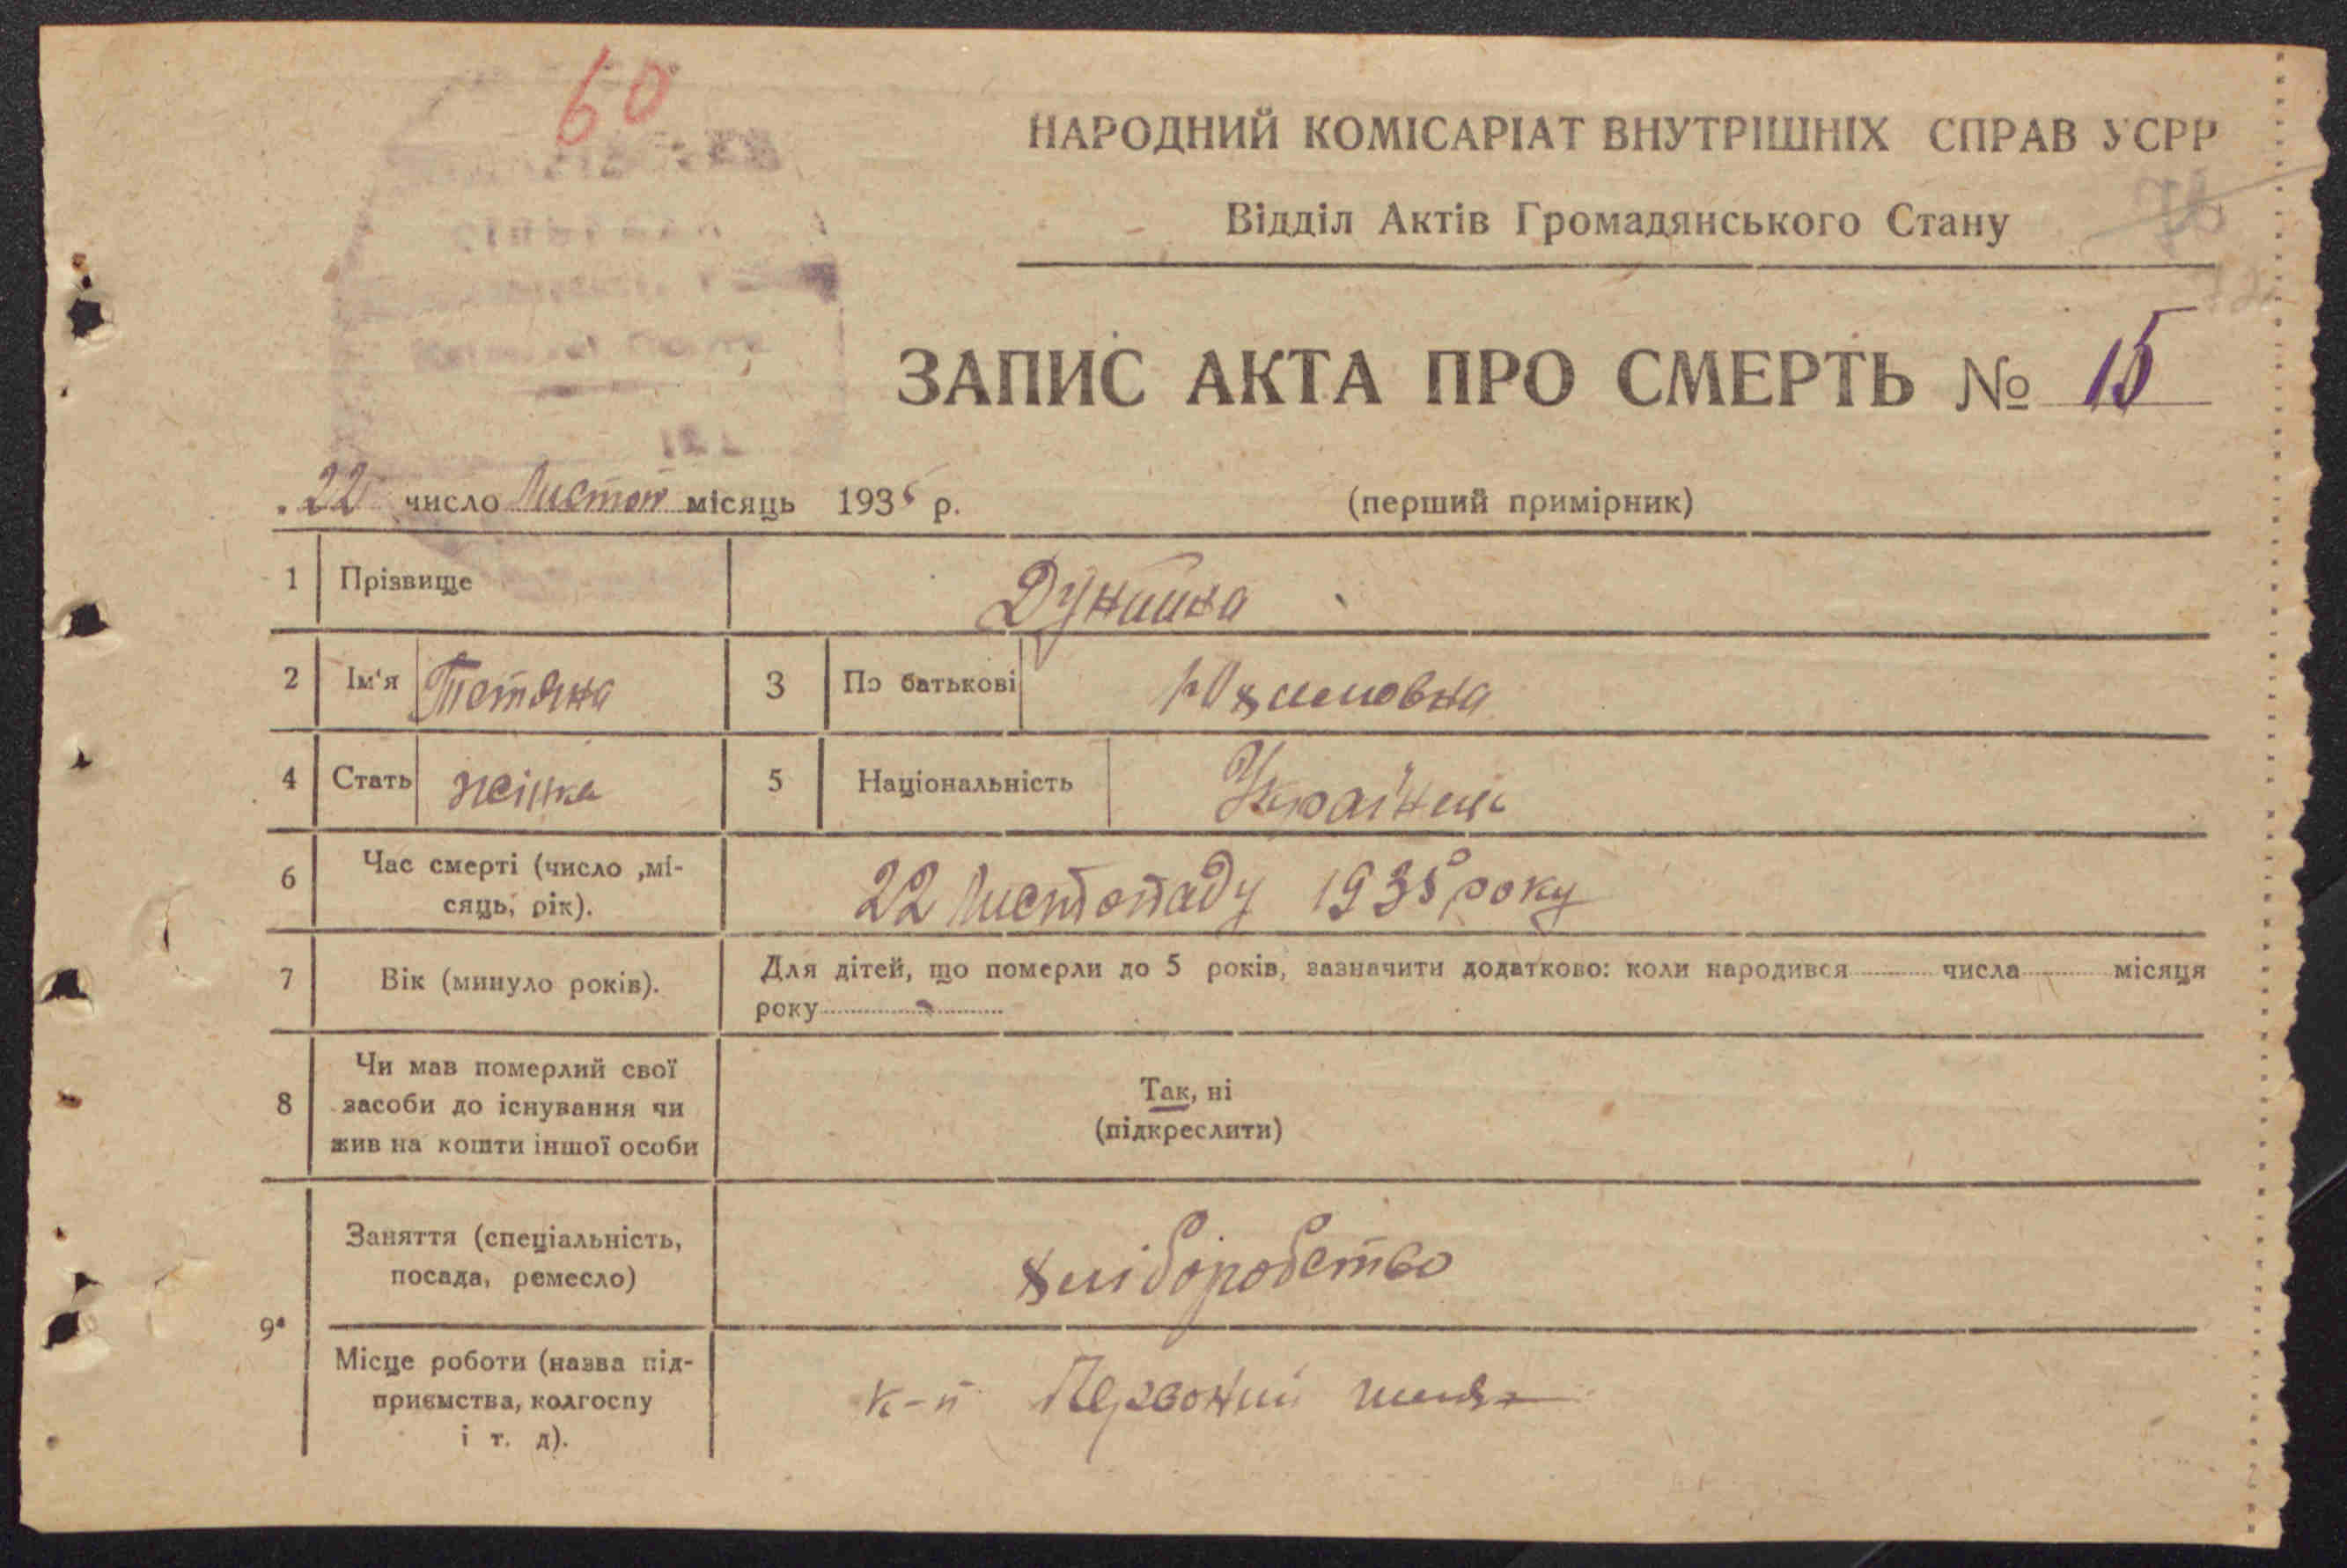 60
НАРОДНИЙ КОМІСАРІАТ ВНУТРІШНІХ СПРАВ УСРР
Відділ Актів Громадянського Стану
ЗАПИС АКТА ПРО СМЕРТЬ № 15
22 число Листоп місяць 1935 р.
(перший примірник)
1 Прізвище
2 Ім'я Тетяна 3 По батькові Юхимовна
4 Стать жінка 5 Національність Українец
6 Час смерті (число ,мі-
сяць, рік).
22 Листопаду 1935 року
7 Вік (минуло років).
Для дітей, що померли до 5 років, зазначити додатково: коли народився числа місяця
року
8 Чи мав померлий свої
засоби до існування чи
жив на кошти іншої особи
Так, ні
(підкреслити)
9а Заняття (спеціальність,
посада, ремесло)
хліборобство
Місце роботи (назва під-
приємства, колгоспу
і т. д).
к-п